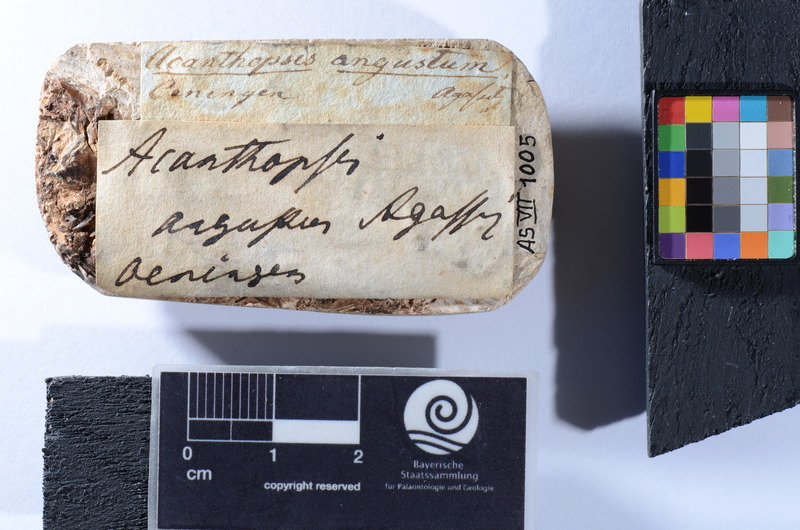 Acanthopsis angustum
Oeningen Agassit
Acanthopsis
angustus Agassiz
Oeningen
AS VII 1005
0 1 2
cm
copyright reserved
Bayerische
Staatssammlung
für Paläontologie und Geologie